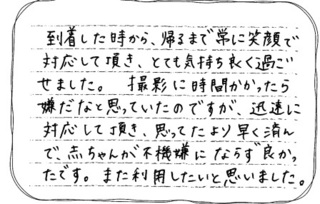 到着した時から、帰るまで常に笑顔で
対応して頂き、とても気持ち良く過ご
せました。 撮影に時間かかったら
嫌だなと思っていたのですが、迅速に
対応して頂き、思ってたより早く済ん
で、赤ちゃんが不機嫌にならず良かっ
たです。また利用したいと思いました。